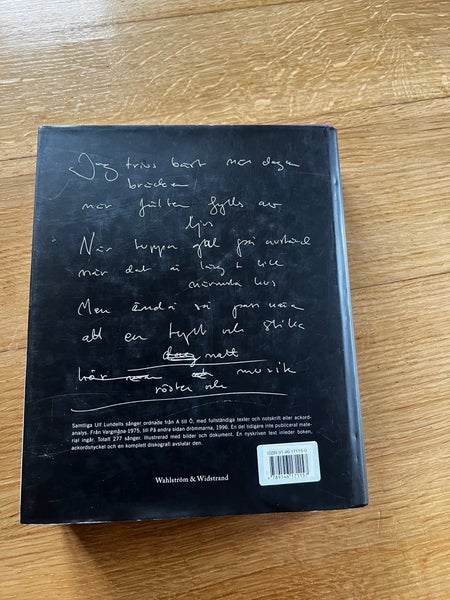 Jag trivs bäst när dagen
bräcker
när fälten fylls av
ljus
När tuppar gal på avstånd
när det är långt till
närmsta hus
Men ändå så pass nära
att en tyst och stilla
natt
hör man musik
röster och
Samtliga Ulf Lundells sånger ordnade från A till Ö, med fullständiga texter och notskrift eller ackord-
analys. Från Vargmåne 1975, till På andra sidan drömmarna, 1996. En del tidigare inte publicerat mate-
rial ingår. Totalt 277 sånger, illustrerad med bilder och dokument. En nyskriven text inleder boken,
ackordsnyckel och en komplett diskografi avslutar den.
Wahlström & Widstrand
ISBN 91-46-17115-0